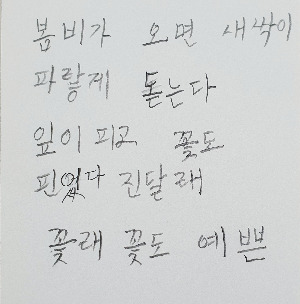 봄비가 오면 새싹이
파랗게 돋는다
잎이 피고 꽃도
핀었다 진달래
꽃래 꽃도 예쁜